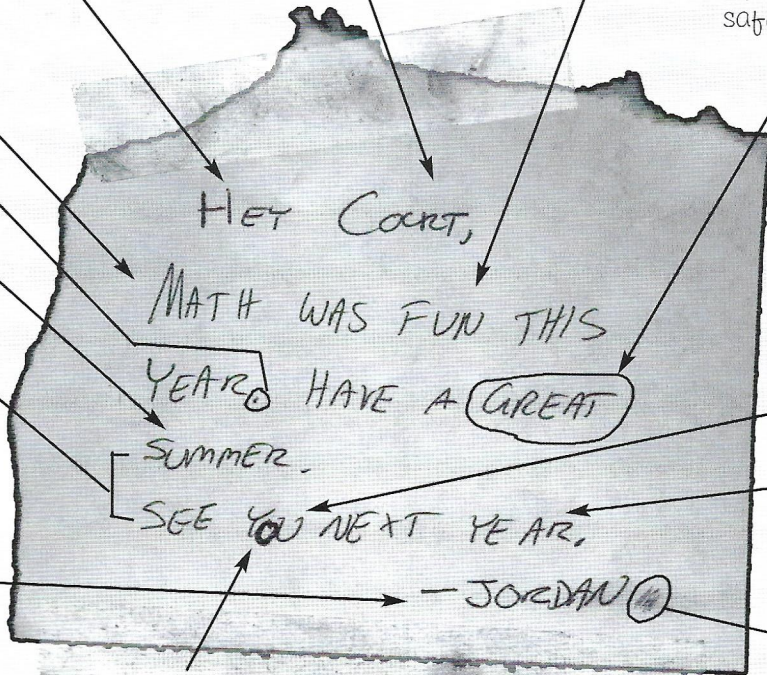 HEY COURT,
MATH WAS FUN THIS
YEAR. HAVE A GREAT
SUMMER.
SEE YOU NEXT YEAR.
— JORDAN